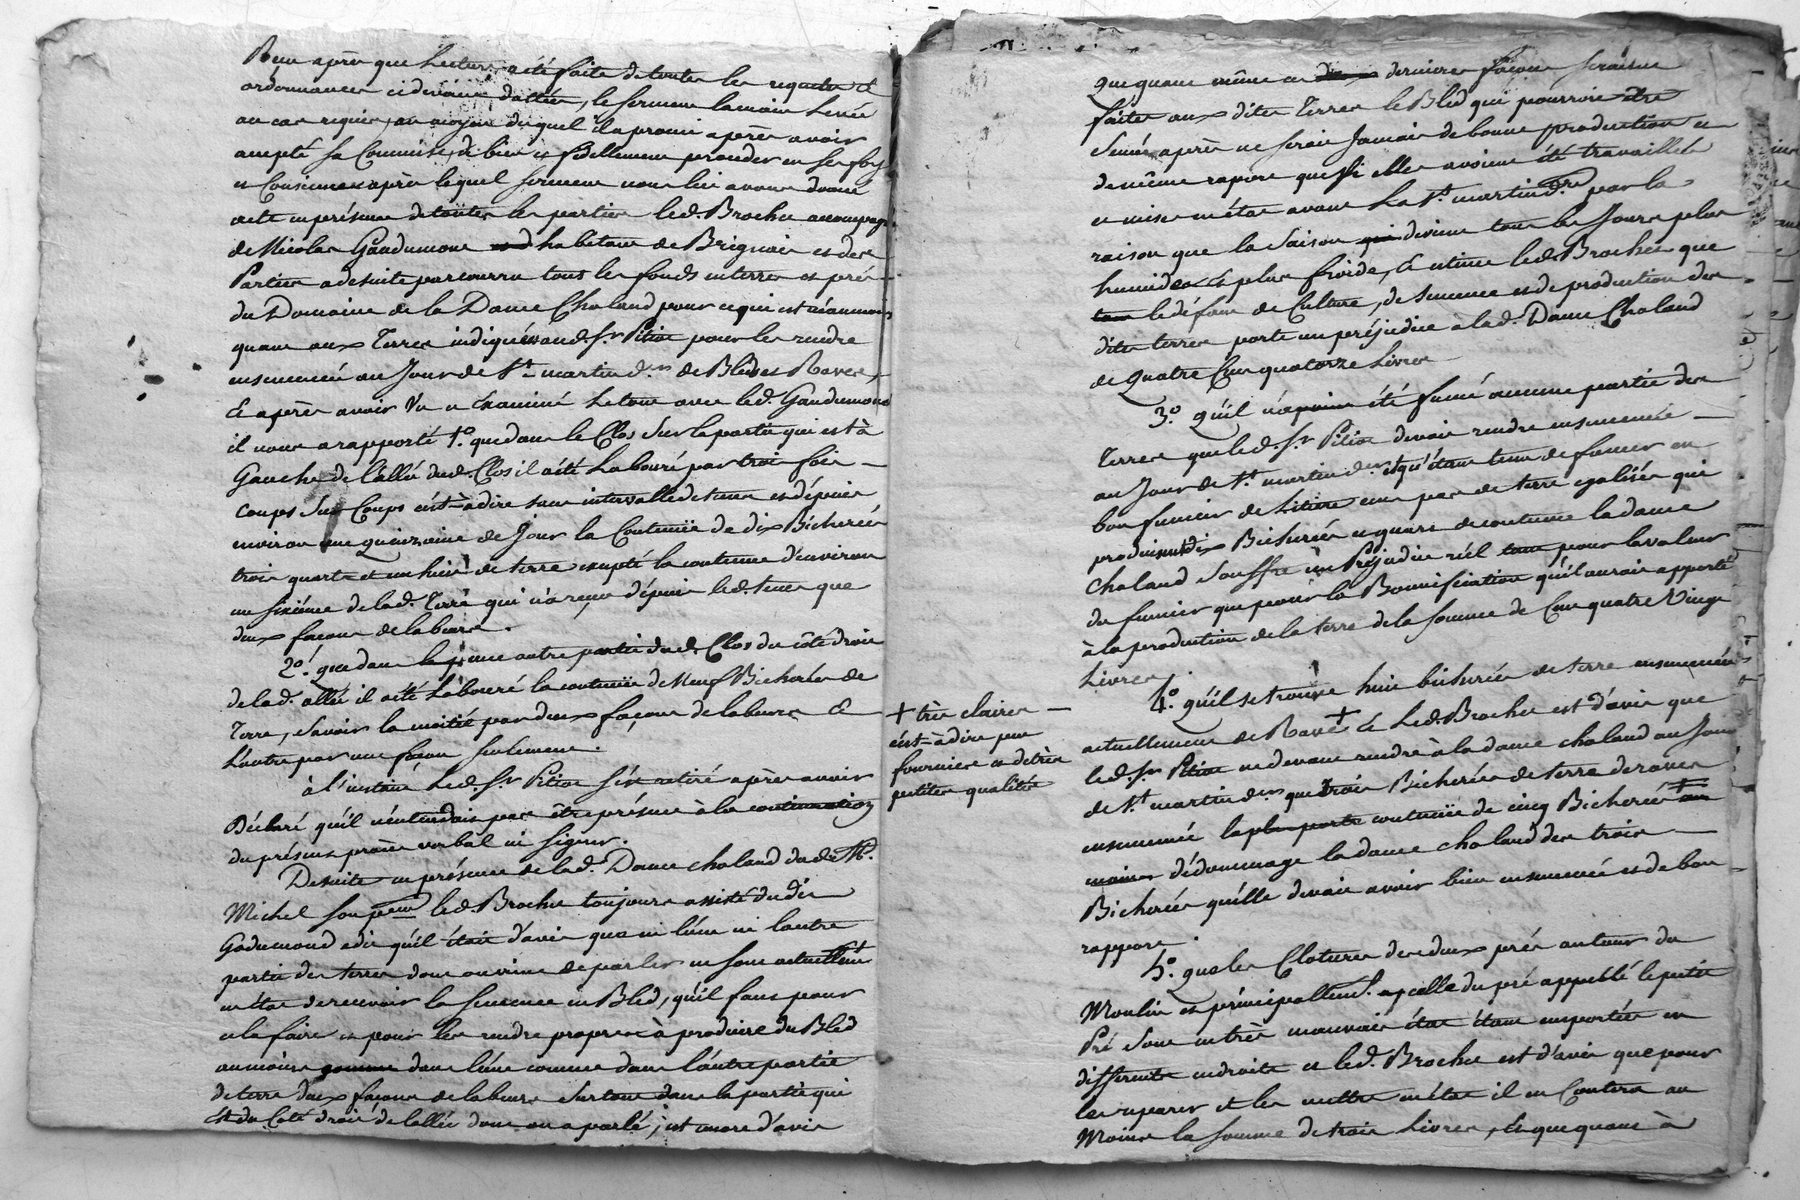 Brun après que Lecture a été faite de toutes les requetes et
ordonnances ci devant dattées, le serment la main Levée
au cas requis, au moyen duquel il a promi après avoir
accepté sa Commission de bien et fidellement proceder en sa foy
et Consience après lequel serment nous lui avons donné
acte en présence de toutes les parties led. Brochu accompagné
de Nicolas Gaudumond habitant de Brignais et des
Parties a de suite parcourru tous les fonds en terres et prés
du Domaine de la Dame Chaland pour ce qui est
quant aux Terres indiquées aud. Sr. Pitiot pour les rendre
ensemencé au Jour de St. martin dr. de Bled et Raves,
Et après avoir Vu et Examiné Le tout avec led. Gaudumond
il nous a rapporté 1.° que dans le Clos sur la partie qui est à
Gauche de l'allée dud. Clos il a été Labouré par trois fois
coups sur Coups c'est-à-dire sans intervalle de tems et dépuis
environ une quinzaine de Jour la Contenüe de dix Bicherées
trois quarts et un huit de terre excepté la contenue d'environ
un sixiéme de lad. Terre qui n'a reçu dépuis led. tems que
deux façons de labeurs.
2.° que dans une autre partie dud. Clos du côté droit
de lad. allée il a été Labouré la contenüe de Neuf Bicherées de
Terre, savoir la moitié par deux façons de labeurs et
L'autre par une façon seulement.
à l'instant Led. Sr. Pitiot s'est retiré après avoir
Déclaré qu'il n'entendais pas être présent à la continuation
du présent procès verbal ni signer.
De suite en présence de lad. Dame chaland dud. Me.
Michel son led. Brochu toujours assisté du dit
Gadumond a dit qu'il étoit d'avis que ni l'une ni l'autre
partie des terres dont on vient de parler ne sont actuellemt.
en état de recevoir la semence en Bled, qu'il faut pour
cela faire et pour les rendre propres à produire du Bled
au moins dans l'une comme dans l'autre partie
de terre deux façons de labeurs surtout dans la partie qui
est du Coté droit de l'allée dont on a parlé; est encore d'avis
que quant même ces dernieres façons seroient
faites aux dites Terres le Bled qui pourroit être
semé après ne seroit Jamais de bonne production et
de même rapport que si elles avoient été travaillées
et mises en état avant La St. martin dr. par la
raison que la saison devient tous les Jours plus
humides et plus froide, Et estime led. Brochet que
le défaut de Culture, de semence et de production des
dites terres porte un préjudice à lad. Dame Chaland
de quatre Cent quatorze Livres
3.° qu'il n'a point été fumé aucune partie des
Terres que led. Sr. Pitiot devoit rendre ensemencée
au Jour de St. martin dr. et qu'étant tenu de fumer au
bon fumier de Litiere une par de terre egalisée qui
produisent dix Bicherées et quart de contenue la dame
chaland souffre un Préjudice réel pour la valeur
du fumier que pour la Bonnification qu'il auroit apporté
à la production de la terre de la somme de Cent quatre Vingt
Livres.
4.° qu'il se trouve huit bicherées de terre ensemencées
actuellement de Raves + Et Led. Brochu est d'avis que
+ très claires
c'est-à-dire peu
fournies et de très
petites qualitée
led. Sr. Pitiot ne devant rendre à la dame chaland au Jour
de St. martin dr. que trois Bicherées de terre de raves
ensemencée contenüe de cinq Bicherées
dédommage la dame chaland des trois
Bicherées qu'elle devoit avoir bien ensemencée et de bon
rapport.
5.° que les Clotures des deux prés autour du
Moulin et principallemt. celle du pré appellé le petit
Pré sont en très mauvais état étant emportées en
differents endroits et led. Brochu est d'avis que pour
les reparer et les mettre en état il en Coutera au
Moins la somme de trois Livres, Et que quant à